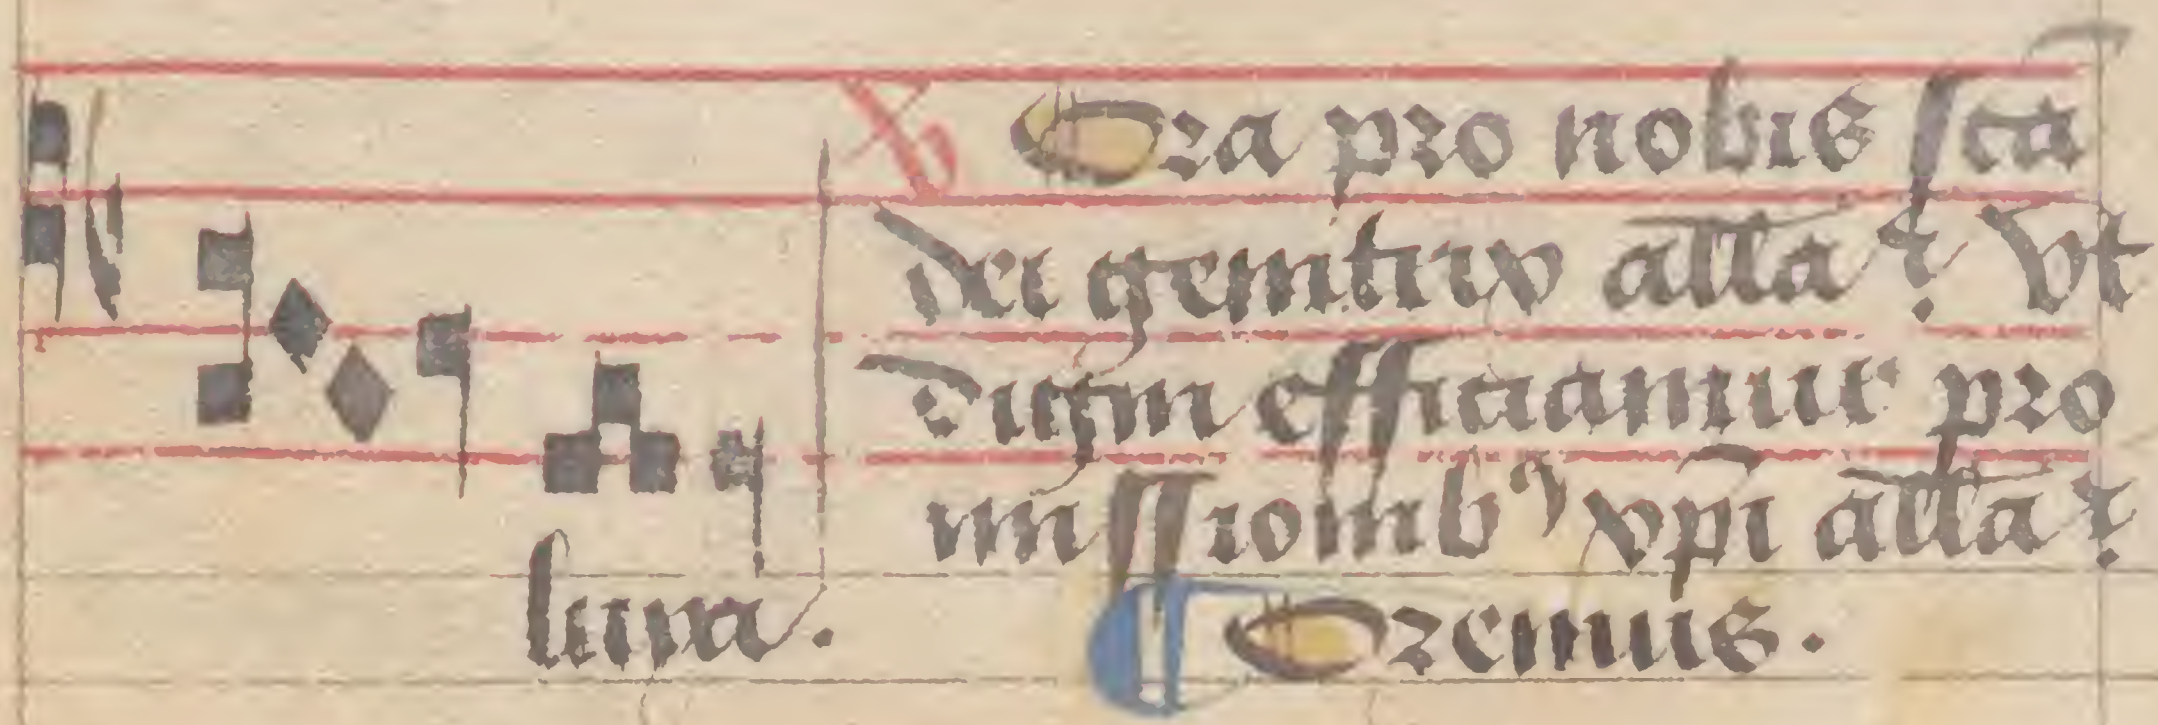 ℣ Ora pro nobis sc̄a
dei genitrix all̄a. Vt
digni efficiamur pro
missionibꝰ xp̄i all̄a.
luya.
¶ Oremus.